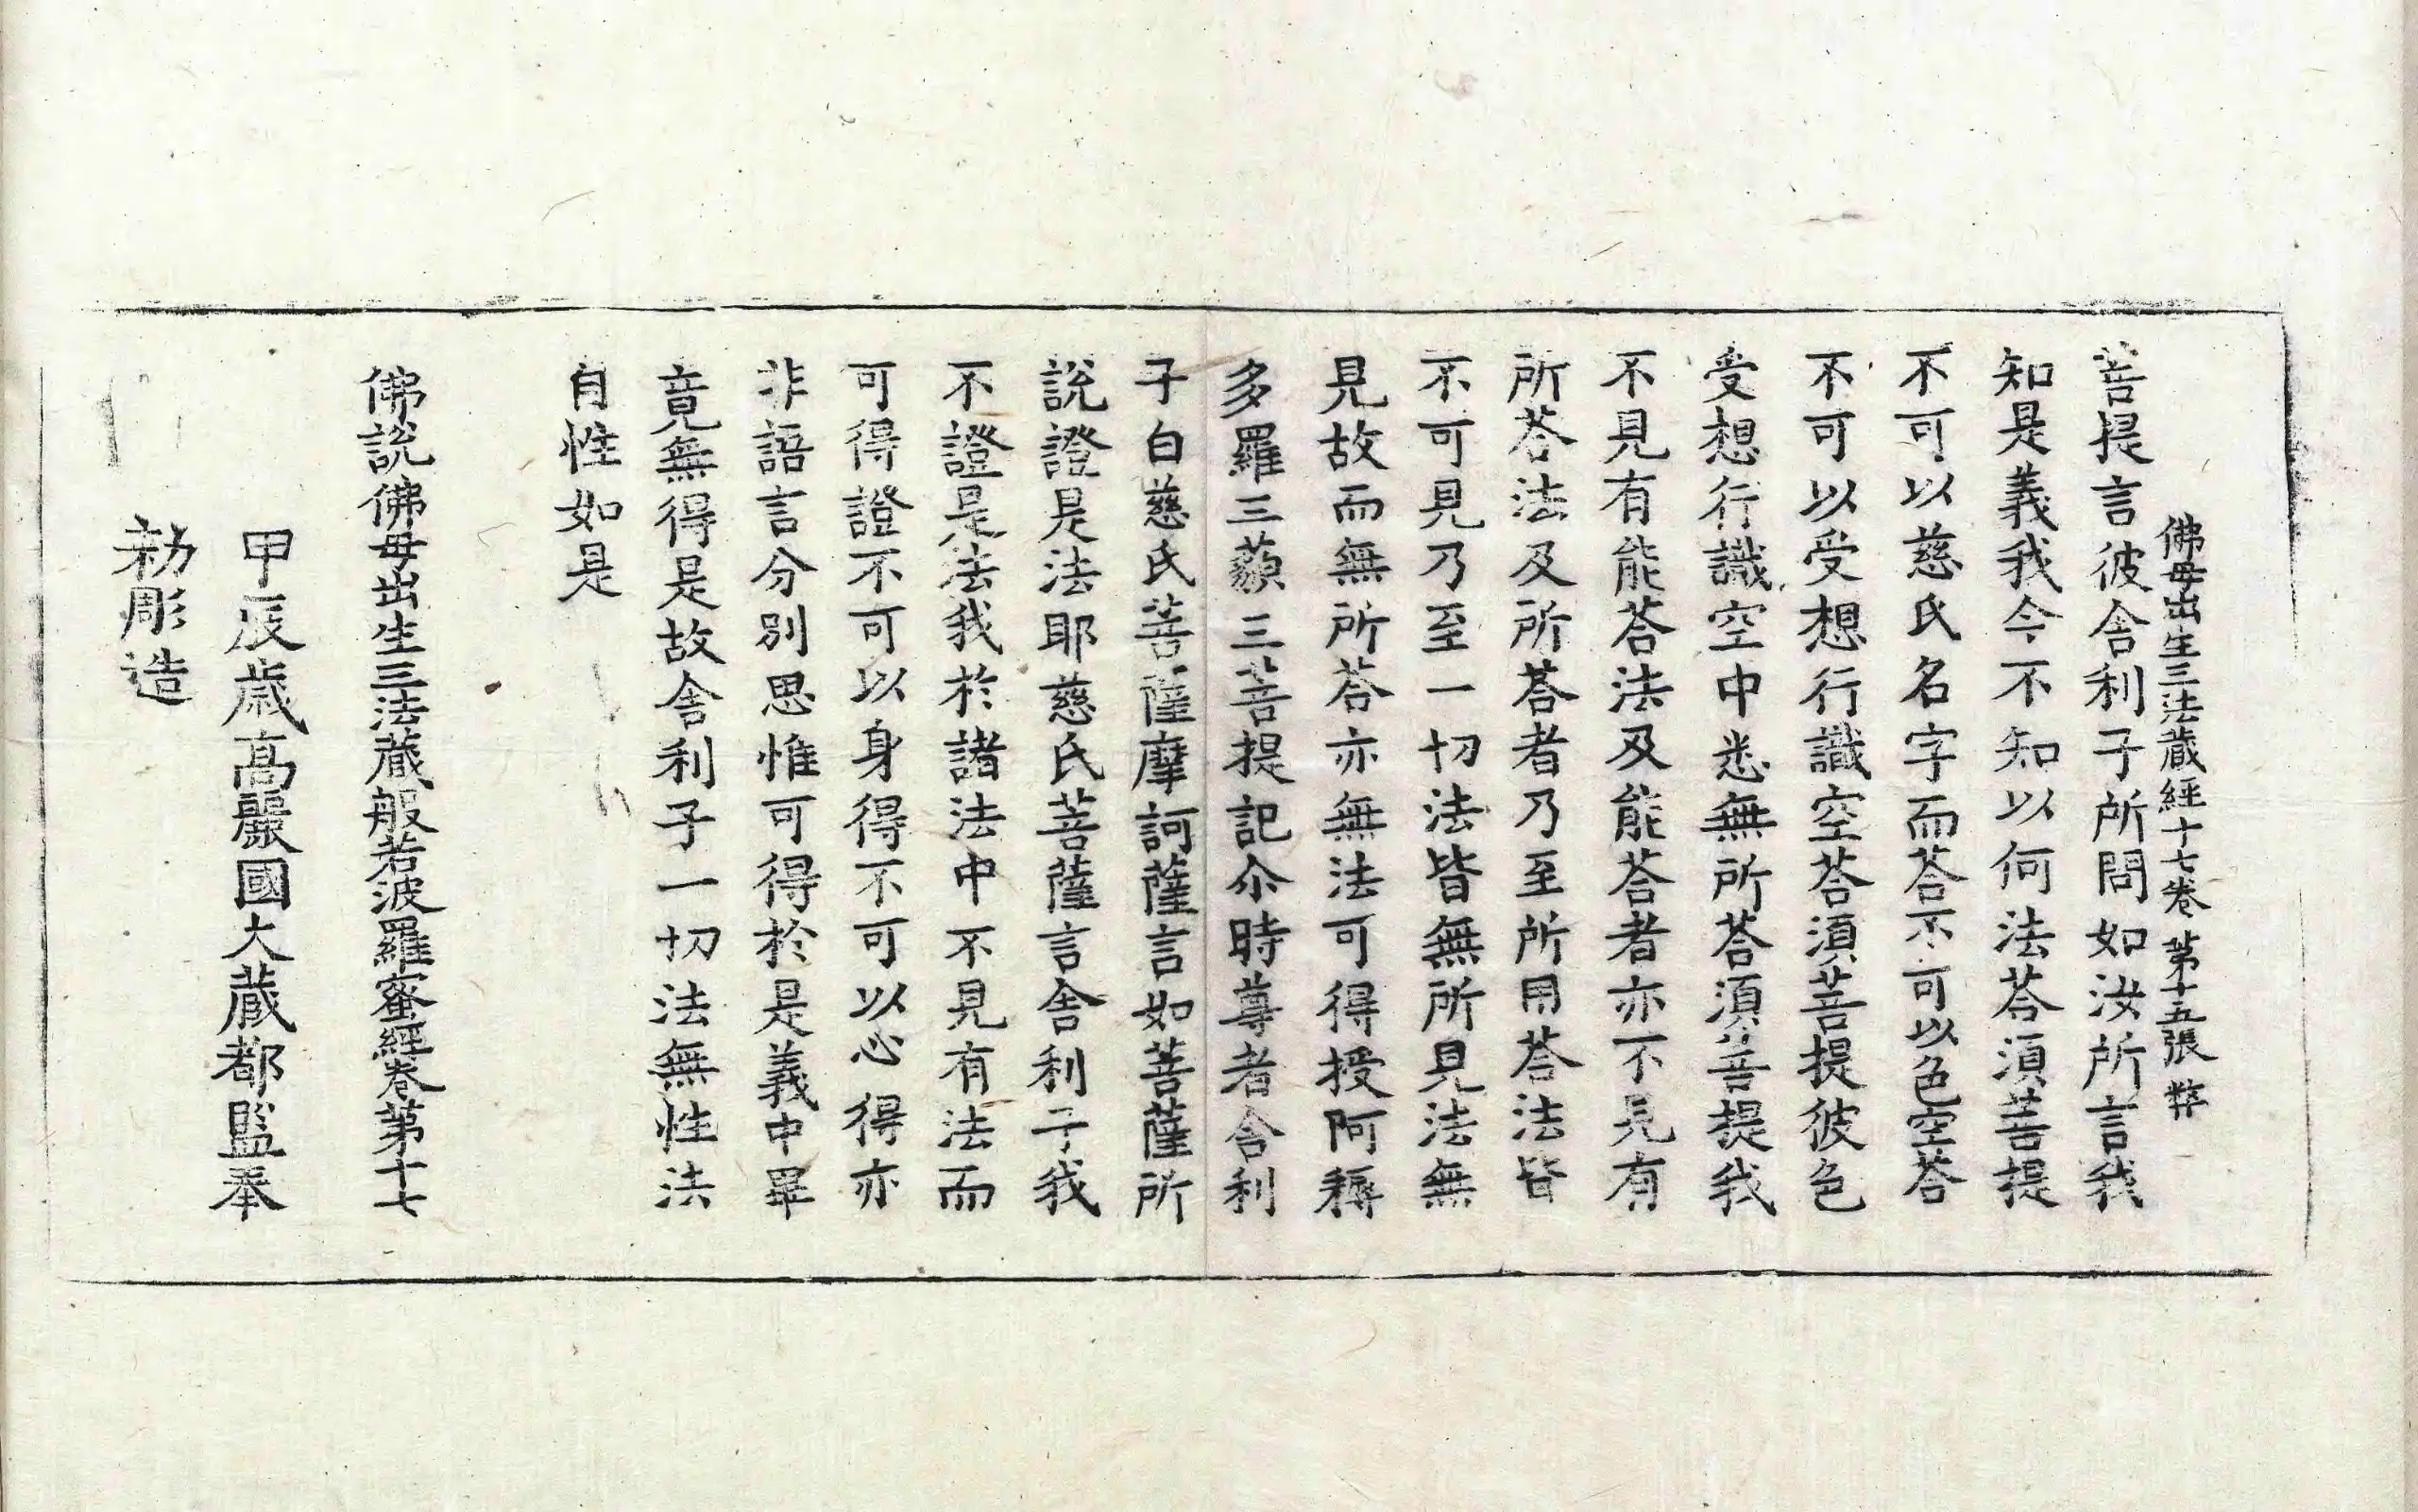 佛母出生三法藏經十七卷 第十五張 弊
菩提言彼舍利子所問如汝所言我
知是義我今不知以何法荅湏菩提
不可以慈氏名字而荅不可以色空荅
不可以受想行識空荅湏菩提彼色
受想行識空中悉無所荅湏菩提我
不見有能荅法及能荅者亦不見有
所荅法及所荅者乃至所用荅法皆
不可見乃至一切法皆無所見法無
見故而無所荅亦無法可得授阿耨
多羅三藐三菩提記尒時尊者舍利
子白慈氏菩薩摩訶薩言如菩薩所
說證是法耶慈氏菩薩言舍利子我
不證是法我於諸法中不見有法而
可得證不可以身得不可以心得亦
非語言分別思惟可得於是義中畢
竟無得是故舍利子一切法無性法
自性如是
佛說佛母出生三法藏般若波羅蜜經卷第十七
甲辰歳高麗國大藏都監奉
勑彫造